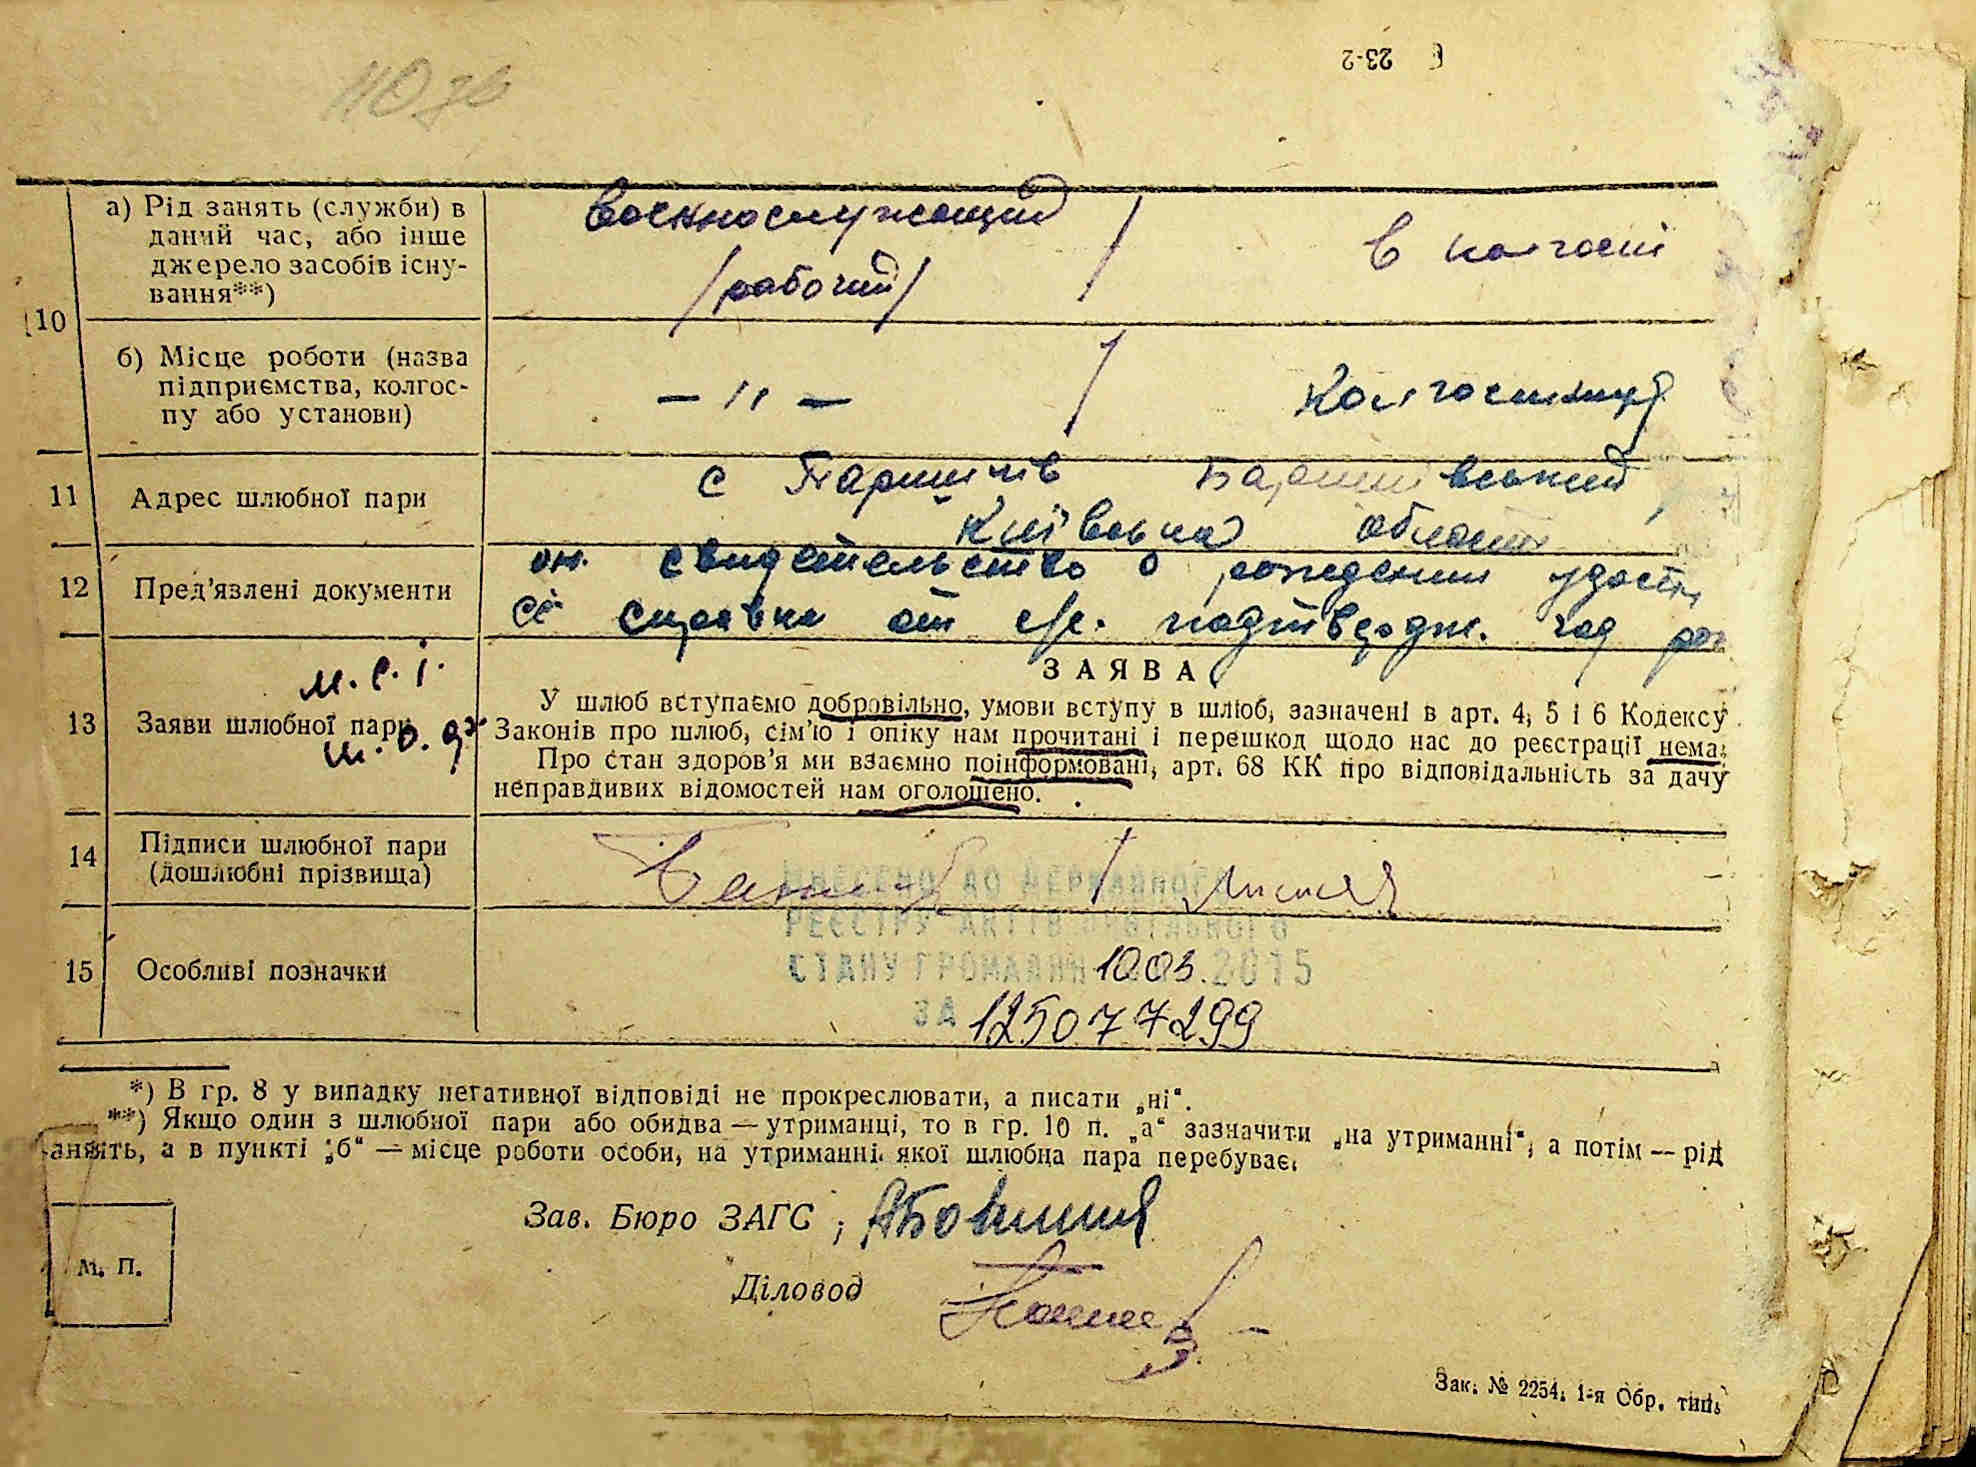 23-2
110 зв
10
а) Рід занять (служби) в
даний час, або інше
джерело засобів існу-
вання**)
военнослужащий
/рабочий/
/
в колгосп
б) Місце роботи (назва
підприємства, колгос-
пу або установи)
— " —
/
11
Адрес шлюбної пари
с
Київська област
12
Пред’явлені документи
он. свидетельство о рождении
её справка от с/с. год
13
Заяви шлюбної пари
ЗАЯВА
У шлюб вступаємо добровільно, умови вступу в шлюб, зазначені в арт. 4, 5 і 6 Кодексу
Законів про шлюб, сім’ю і опіку нам прочитані і перешкод щодо нас до реєстрації нема;
Про стан здоров’я ми взаємно поінформовані, арт. 68 КК про відповідальність за дачу
неправдивих відомостей нам оголошено.
14
Підписи шлюбної пари
(дошлюбні прізвища)
ВНЕСЕНО ДО ДЕРЖАВНОГО
РЕЄСТРУ АКТІВ ЦИВІЛЬНОГО
15
Особливі позначки
СТАНУ ГРОМАДЯН 10.03.2015
ЗА 125077299
*) В гр. 8 у випадку негативної відповіді не прокреслювати, а писати „ні“.
**) Якщо один з шлюбної пари або обидва — утриманці, то в гр. 10 п. „а“ зазначити „на утриманні“, а потім — рід
занять, а в пункті „б“ — місце роботи особи, на утриманні якої шлюбна пара перебуває.
Зав. Бюро ЗАГС
Діловод
М. П.
Зак. № 2254. 1-я Обр. тип.